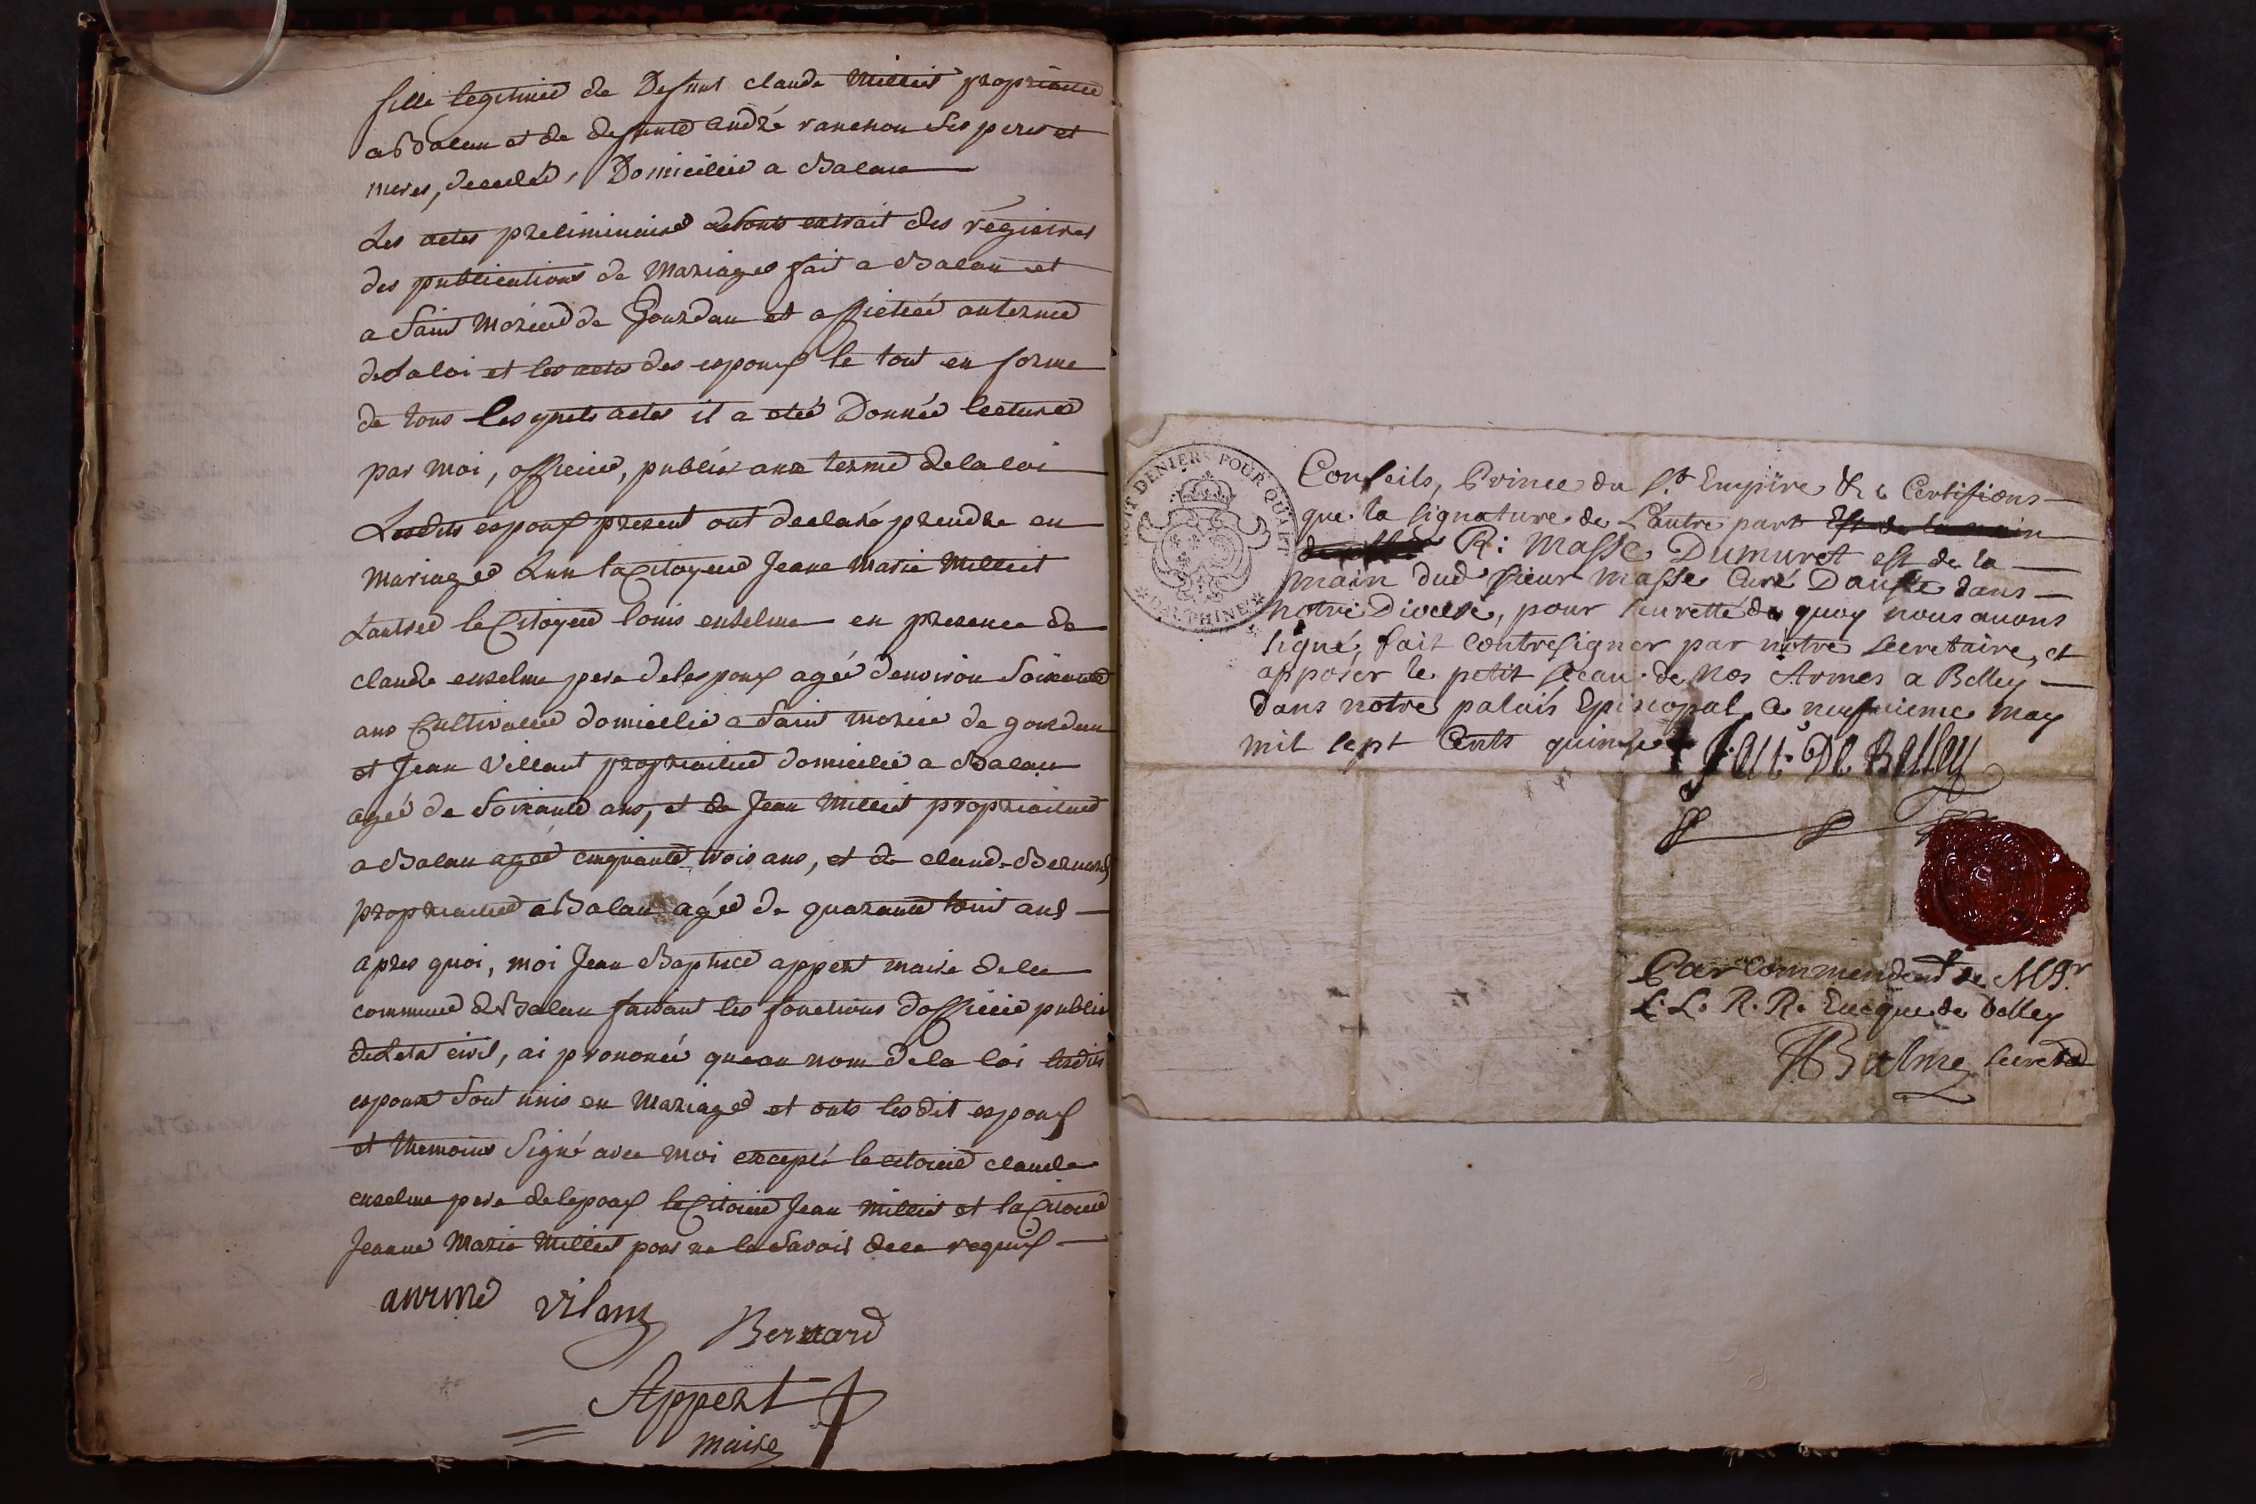 fille legitime de Defunt claude Milliet propriaitre
a Balan et de defunte André ranchon Ses peres et
meres, decedés, Domicilié a Balan
Les actes preliminaire Sont extrait des régistres
des publications de Mariages fait a Balan et
a Saint Morice de Gourdan et affichéé au terme
de la loi et les actes des espoux le tout en forme
de tous lesquels actes il a etéé Donnéé lecture
par moi, officier, publiés aux terme de la loi
Lesdits espoux present ont declaré prendre en
Mariage Lun la Citoyene Jeane Marie Milliet
Lautre le Citoyen louis enselme en presence de
claude enselme pere de lespoux agéé denviron Soixante
ans Cultivateur domicilié a Saint morice de gourdan
et Jean Villant propriaitre domicilié a Balan
agéé de Soixante ans, et de Jean Milliet propriaitre
a Balan agéé cinquante trois ans, et de claude Bernard
propriaitre a Balan agéé de quarante huit ans
apres quoi, moi Jean Baptiste appert maire de la
commune de Balan faisant les fonctions d'officier public
de Letat civil, ai prononcé queau nom de la loi lesdits
espoux Sont unis en Mariage et onts lesdit espoux
et themoins Signé avec moi excepté le citoien claude
enselme pere de lepoux le Citoien Jean Milliet et la Citoiene
Jeanne Marie Milliet pour ne le Savoir de ce requis
Vilanz
Bernard
Appert
maire
DENIERS POUR QUART
DAUPHINE
Conseils, Prince du St. Empire &c Certifions
que la signature de L'autre part Est de la main
R: Masse Dumuret est de la
main dud sieur Masse Curé Dauste dans
notre Diocese, pour seuretté de quoy nous avons
signé, fait contresigner par notre secretaire, et
apposér le petit sceau de Nos Armes a Belley
dans notre palais Episcopal, Ce neufuieme may
mil sept Cents quinze
De Belley
Par commendemt de MGr
L. L. R. R. Eueque de belley
Balme secret